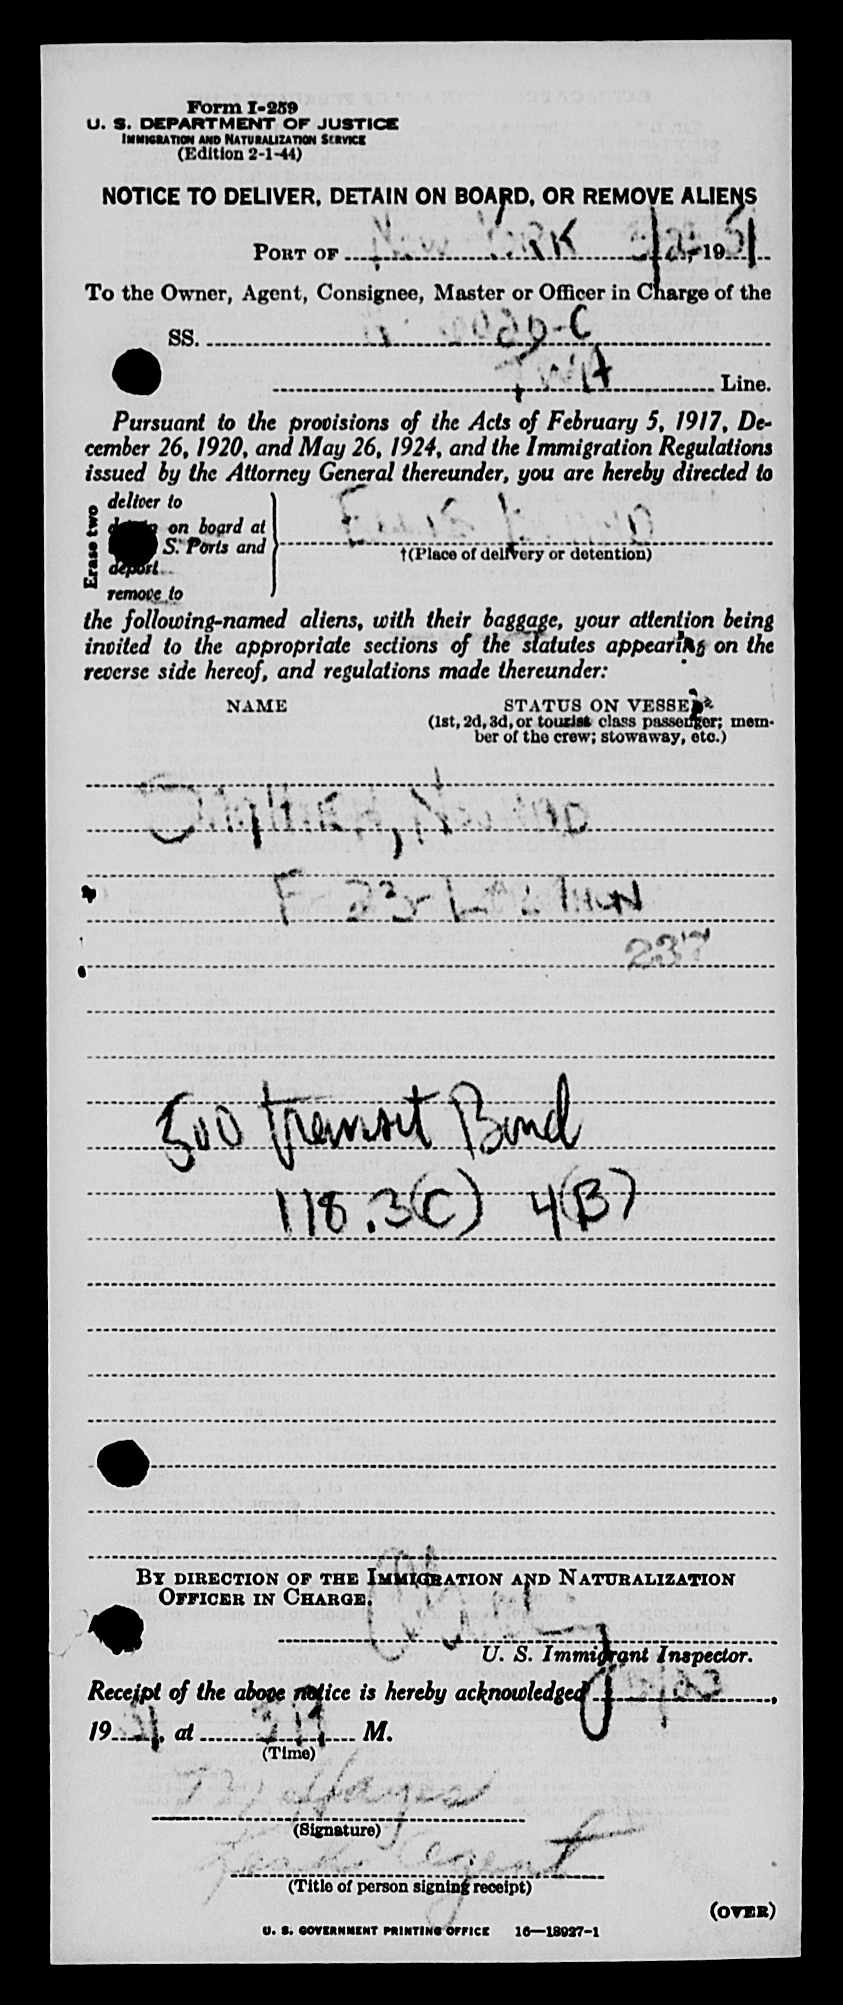 Form I-259
U. S. DEPARTMENT OF JUSTICE
IMMIGRATION AND NATURALIZATION SERVICE
(Edition 2-1-44)
NOTICE TO DELIVER, DETAIN ON BOARD, OR REMOVE ALIENS
PORT OF New York , 1951
To the Owner, Agent, Consignee, Master or Officer in Charge of the
SS.
TWA Line.
Pursuant to the provisions of the Acts of February 5, 1917, De-
cember 26, 1920, and May 26, 1924, and the Immigration Regulations
issued by the Attorney General thereunder, you are hereby directed to
Erase two
deliver to
on board at
S. Ports and
deport
remove to
Ellis Island
†(Place of delivery or detention)
the following-named aliens, with their baggage, your attention being
invited to the appropriate sections of the statutes appearing on the
reverse side hereof, and regulations made thereunder:
NAME STATUS ON VESSEL
(1st, 2d, 3d, or tourist class passenger; mem-
ber of the crew; stowaway, etc.)
F 23
237
500 transit Bond
118.3(C) 4(B)
BY DIRECTION OF THE IMMIGRATION AND NATURALIZATION
OFFICER IN CHARGE.
U. S. Immigrant Inspector.
Receipt of the above notice is hereby acknowledged ,
19 51, at M.
(Time)
Hayes
(Signature)
Agent
(Title of person signing receipt)
(OVER)
U. S. GOVERNMENT PRINTING OFFICE 16—18927-1